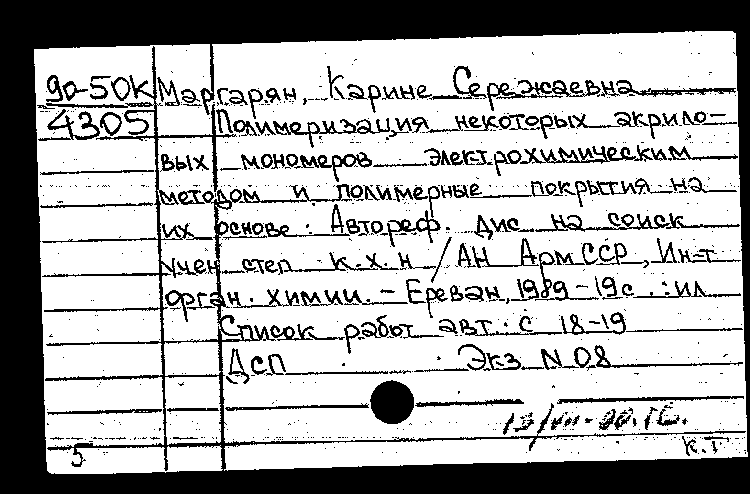 90-50К Маргарян, Карине Сережаевна
4305 Полимеризация некоторых акрило-
вых мономеров электрохимическим
методом и полимерные покрытия на
их основе: Автореф. дис на соиск
учен степ к.х.н / АН АрмССР, Ин-т
орган. химии. - Ереван, 1989 - 19с. :ил
Список работ авт.: с 18-19
Дсп Экз N 08
5 к.т